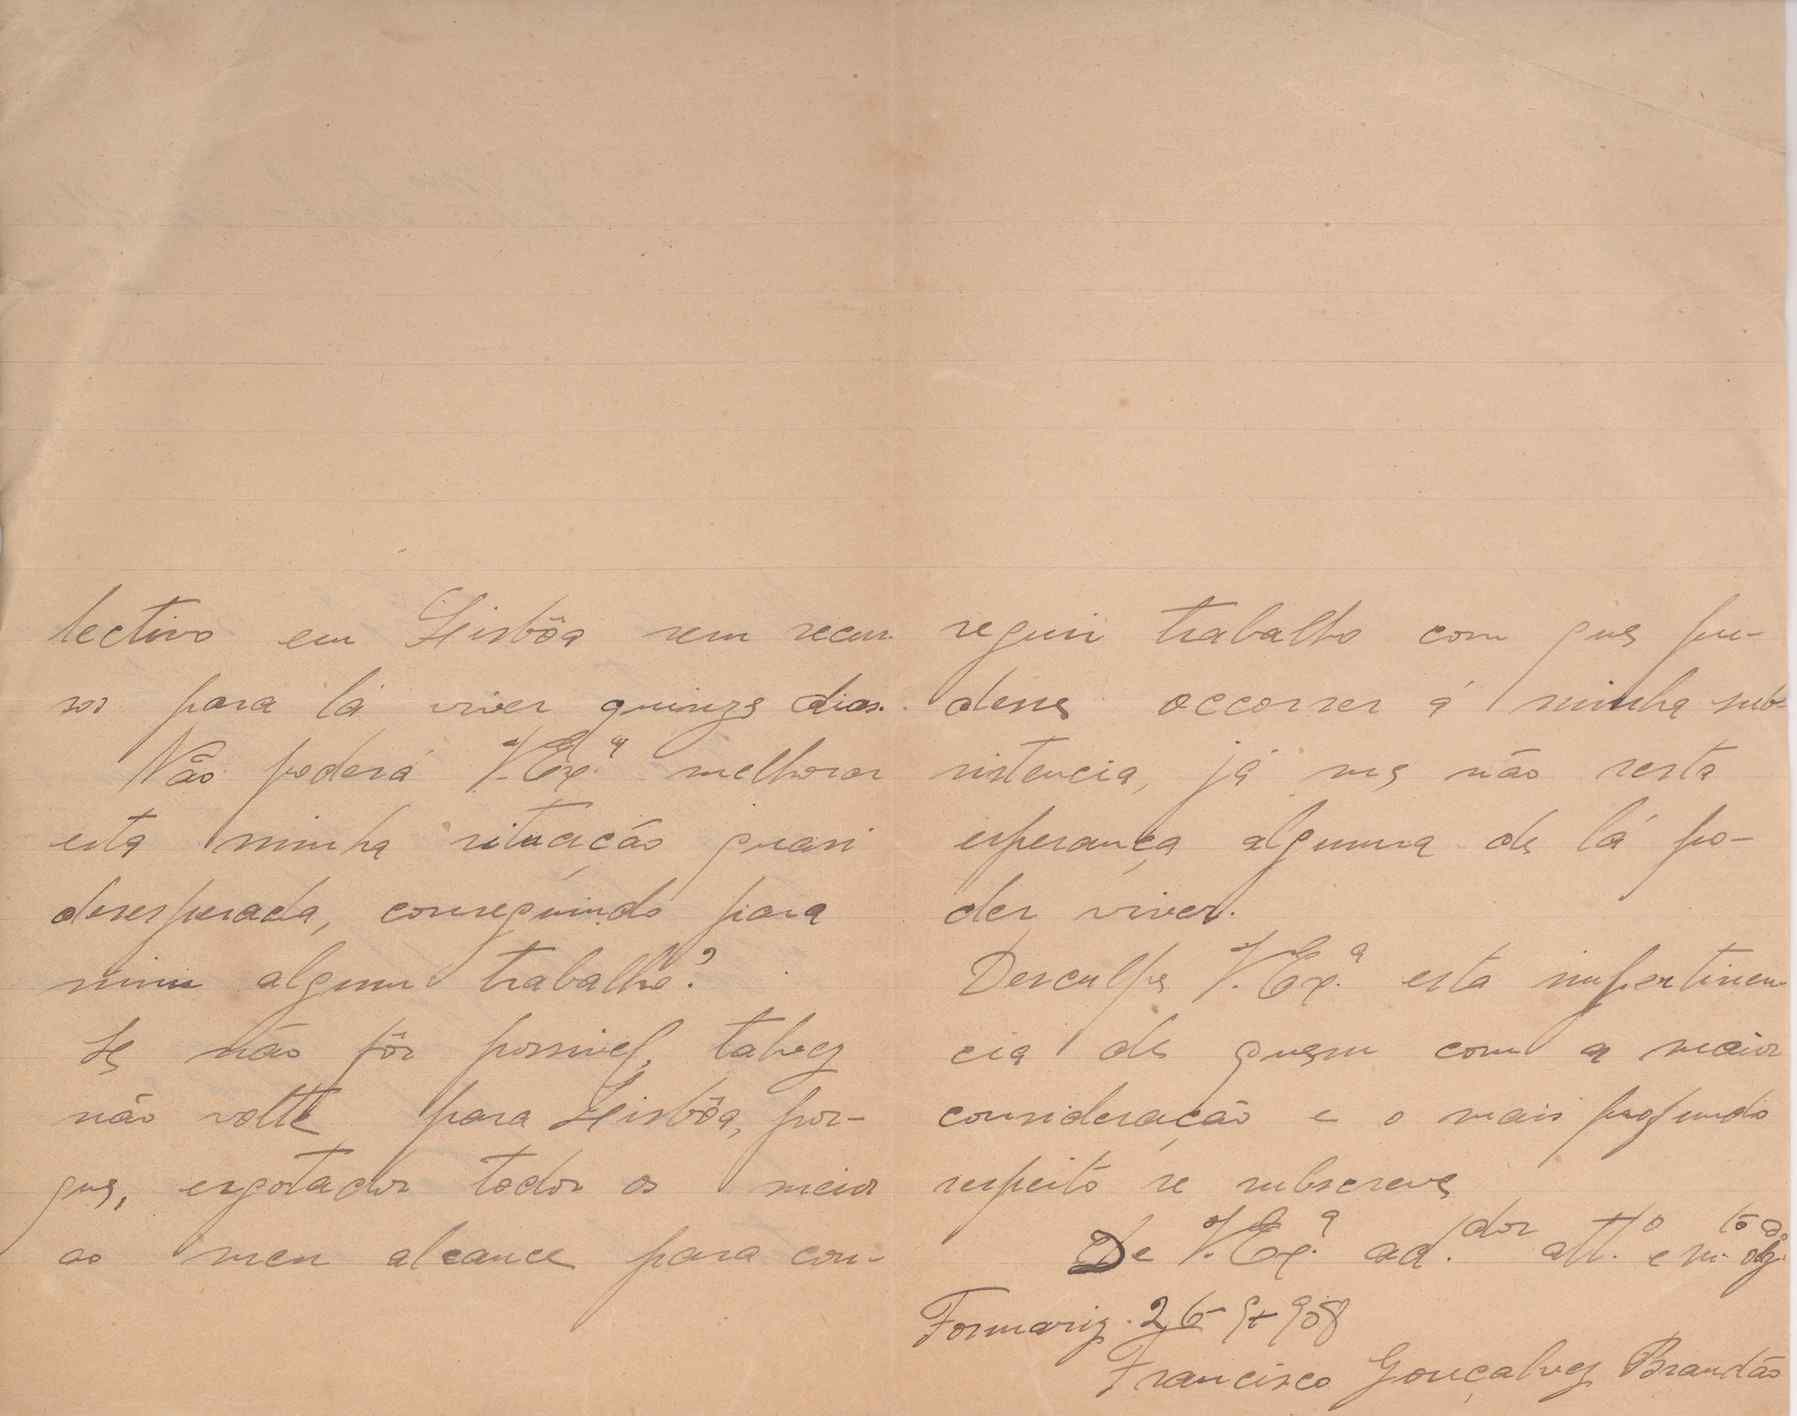 lectivo em Lisbôa sem recur-
sos para lá viver quinze dias.
Não poderá V. Ex.ª melhorar
esta minha situação quasi
desesperada, conseguindo para
mim algum trabalho?
Se não fôr possivel, talvez
não volte para Lisbôa, por-
que, esgotados todos os meios
ao meu alcance para con-
seguir trabalho com que pu-
desse occorrer á minha sub-
sistencia, já me não resta
esperança alguma de lá po-
der viver.
Desculpe V. Ex.ª esta impertinen-
cia de quem com a maior
consideração e o mais profundo
respeito se subscreve
De V. Ex.ª ad.dor att.o e m.to obg.o
Formariz. 26- 908
Francisco Gonçalvez Brandão